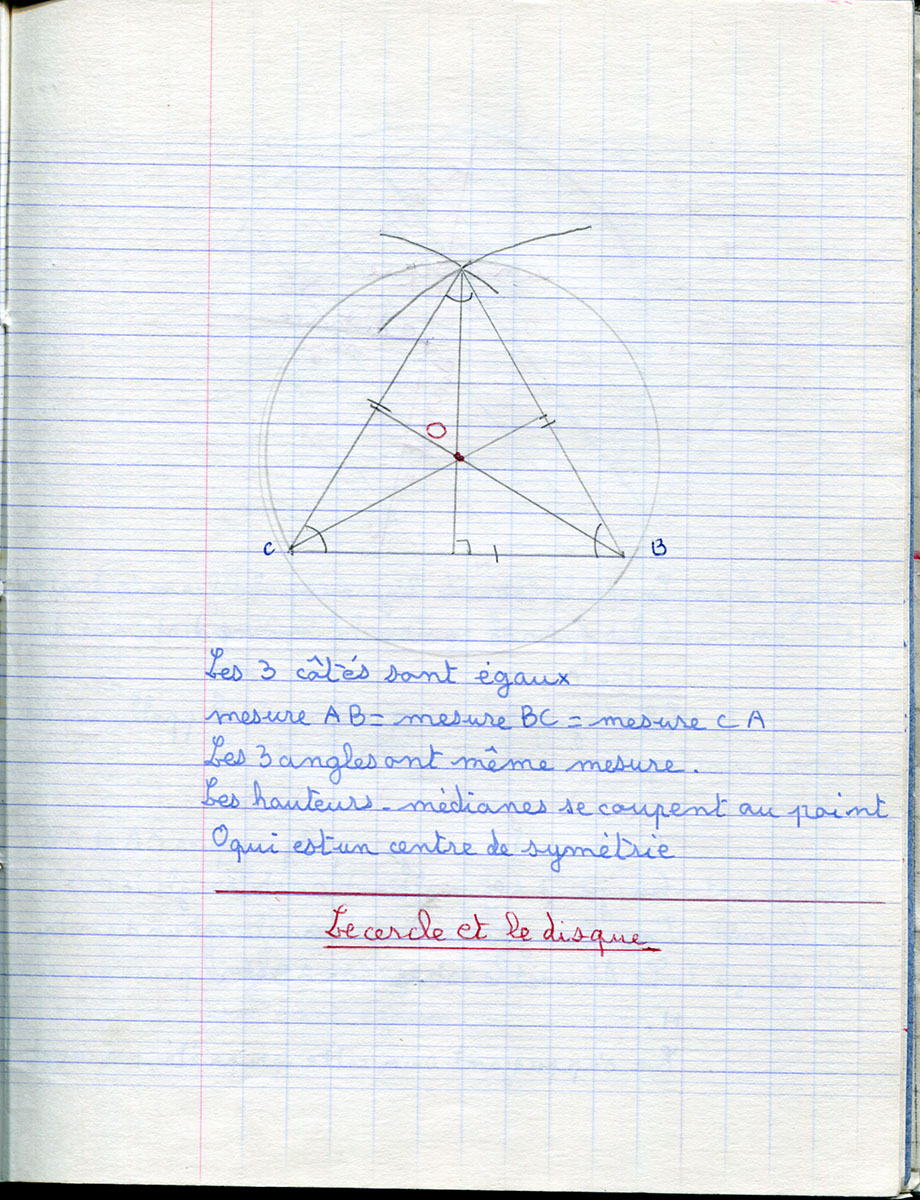 O
C
B
Les 3 côtés sont égaux
mesure AB = mesure BC = mesure CA
Les 3 angles ont même mesure.
Les hauteurs - médianes se coupent au point
O qui est un centre de symétrie
Le cercle et le disque